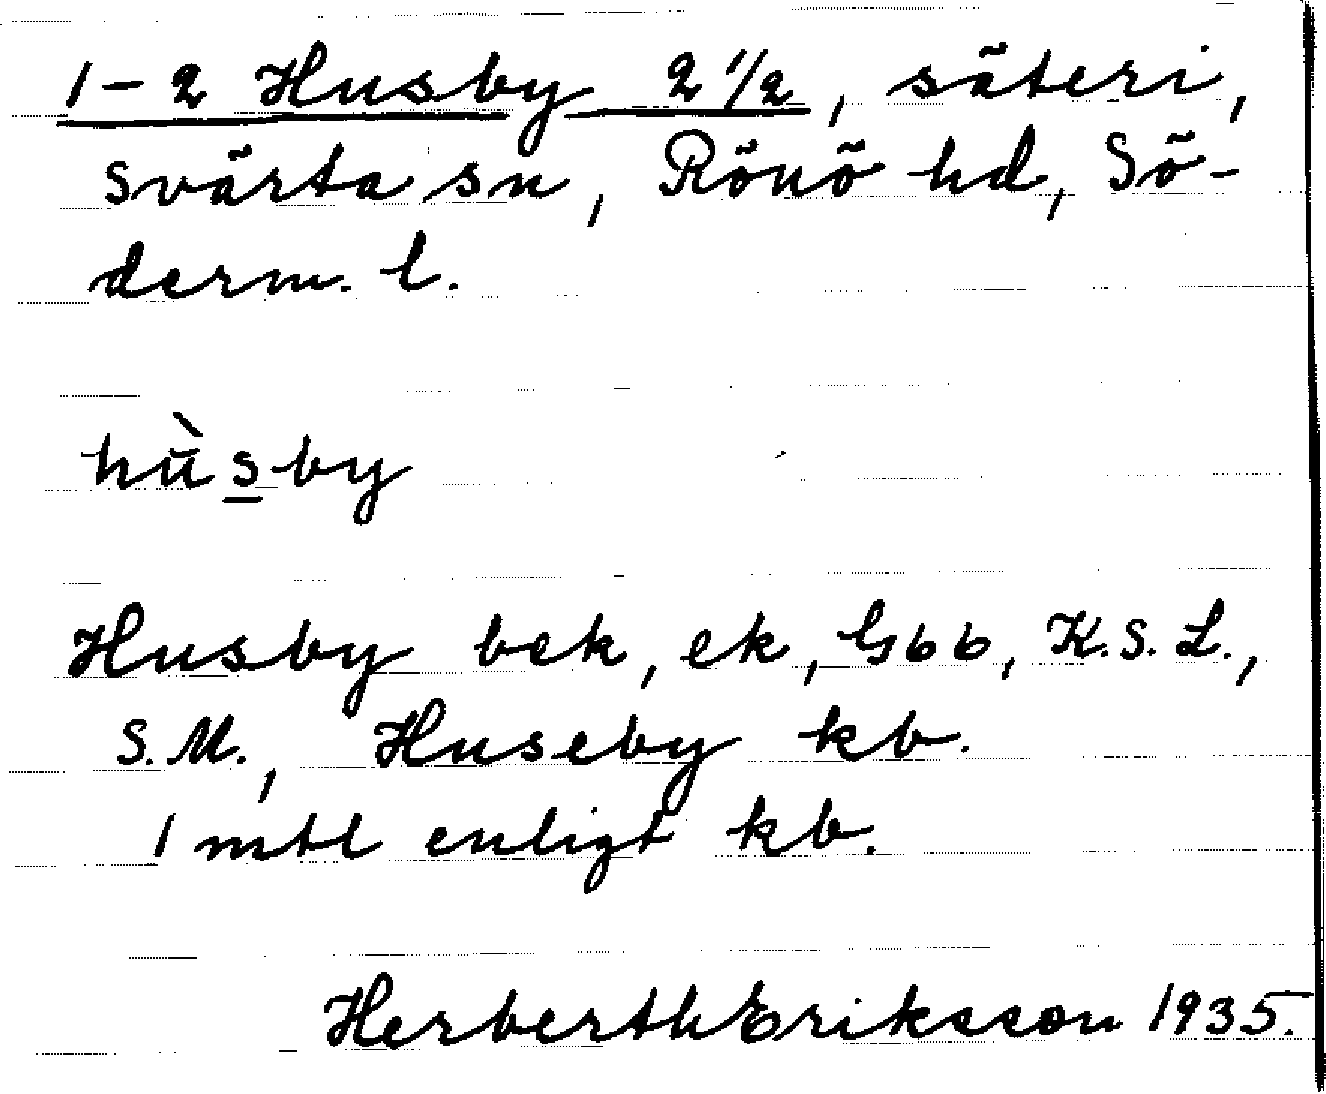 1-2 Husby 2 1/2, säteri,
Svärta sn, Rönö hd, Sö-
derm. l.
hù̄s̲by
Husby bek, ek, Gbb, K.S.L.,
S.M., Huseby kb.
1 mtl enligt kb.
Herberth Eriksson 1935.